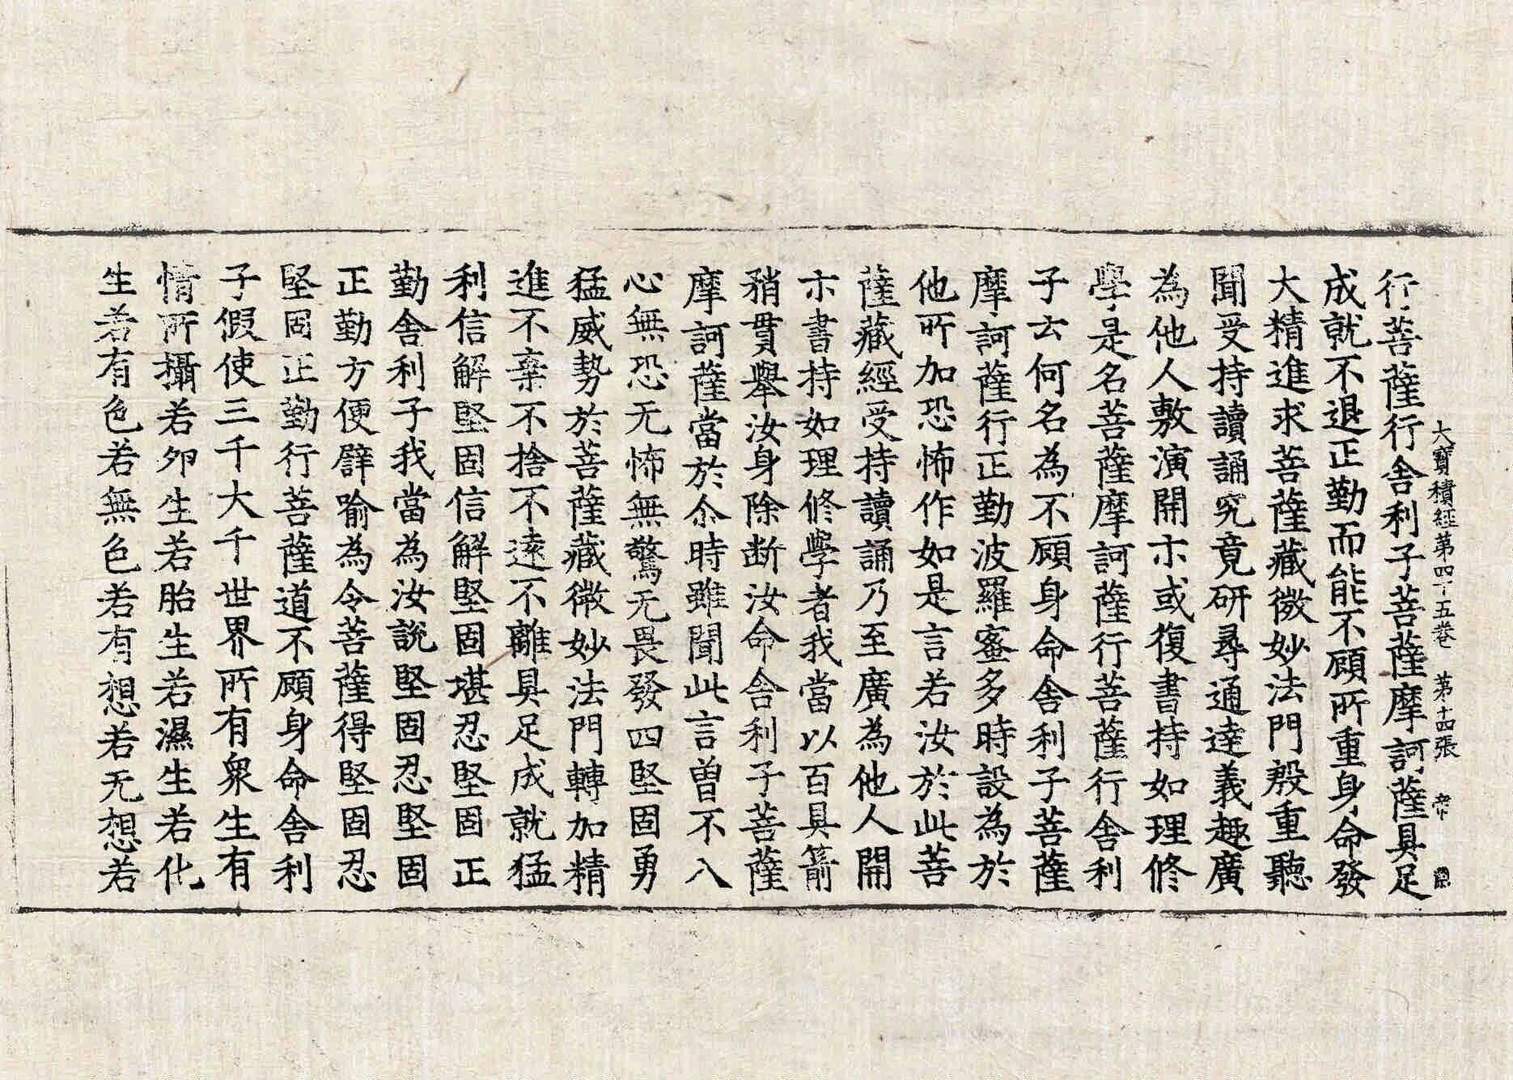 大寶積經第四十五卷 第十四張 帝
行菩薩行舍利子菩薩摩訶薩具足
成就不退正勤而能不顧所重身命發
大精進求菩薩藏微妙法門殷重聽
聞受持讀誦究竟研尋通達義趣廣
為他人敷演開示或復書持如理修
學是名菩薩摩訶薩行菩薩行舍利
子云何名為不顧身命舍利子菩薩
摩訶薩行正勤波羅蜜多時設為於
他所加恐怖作如是言若汝於此菩
薩藏經受持讀誦乃至廣為他人開
示書持如理修學者我當以百具箭
矟貫舉汝身除斷汝命舍利子菩薩
摩訶薩當於尒時雖聞此言曾不入
心無恐无怖無驚无畏發四堅固勇
猛威勢於菩薩藏微妙法門轉加精
進不棄不捨不遠不離具足成就猛
利信解堅固信解堅固堪忍堅固正
勤舍利子我當為汝說堅固忍堅固
正勤方便譬喻為令菩薩得堅固忍
堅固正勤行菩薩道不顧身命舍利
子假使三千大千世界所有衆生有
情所攝若夘生若胎生若濕生若化
生若有色若無色若有想若无想若